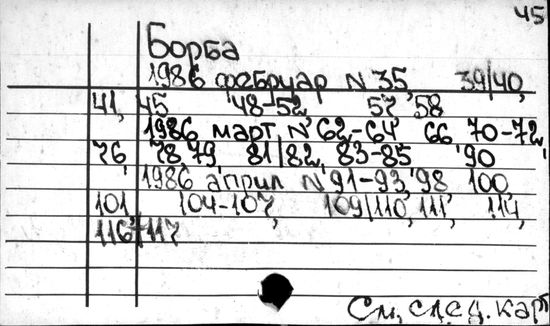 45
Борба
1986 фебруар N 35, 39/40,
41, 45 48-52, 57, 58
1986 март, N 62-64 66, 70-72,
76, 78, 79, 81/82, 83-85 90
1986 април N 91-93, 98 100,
101 104-107, 109/110, 111, 114,
116-117
См, след. карт